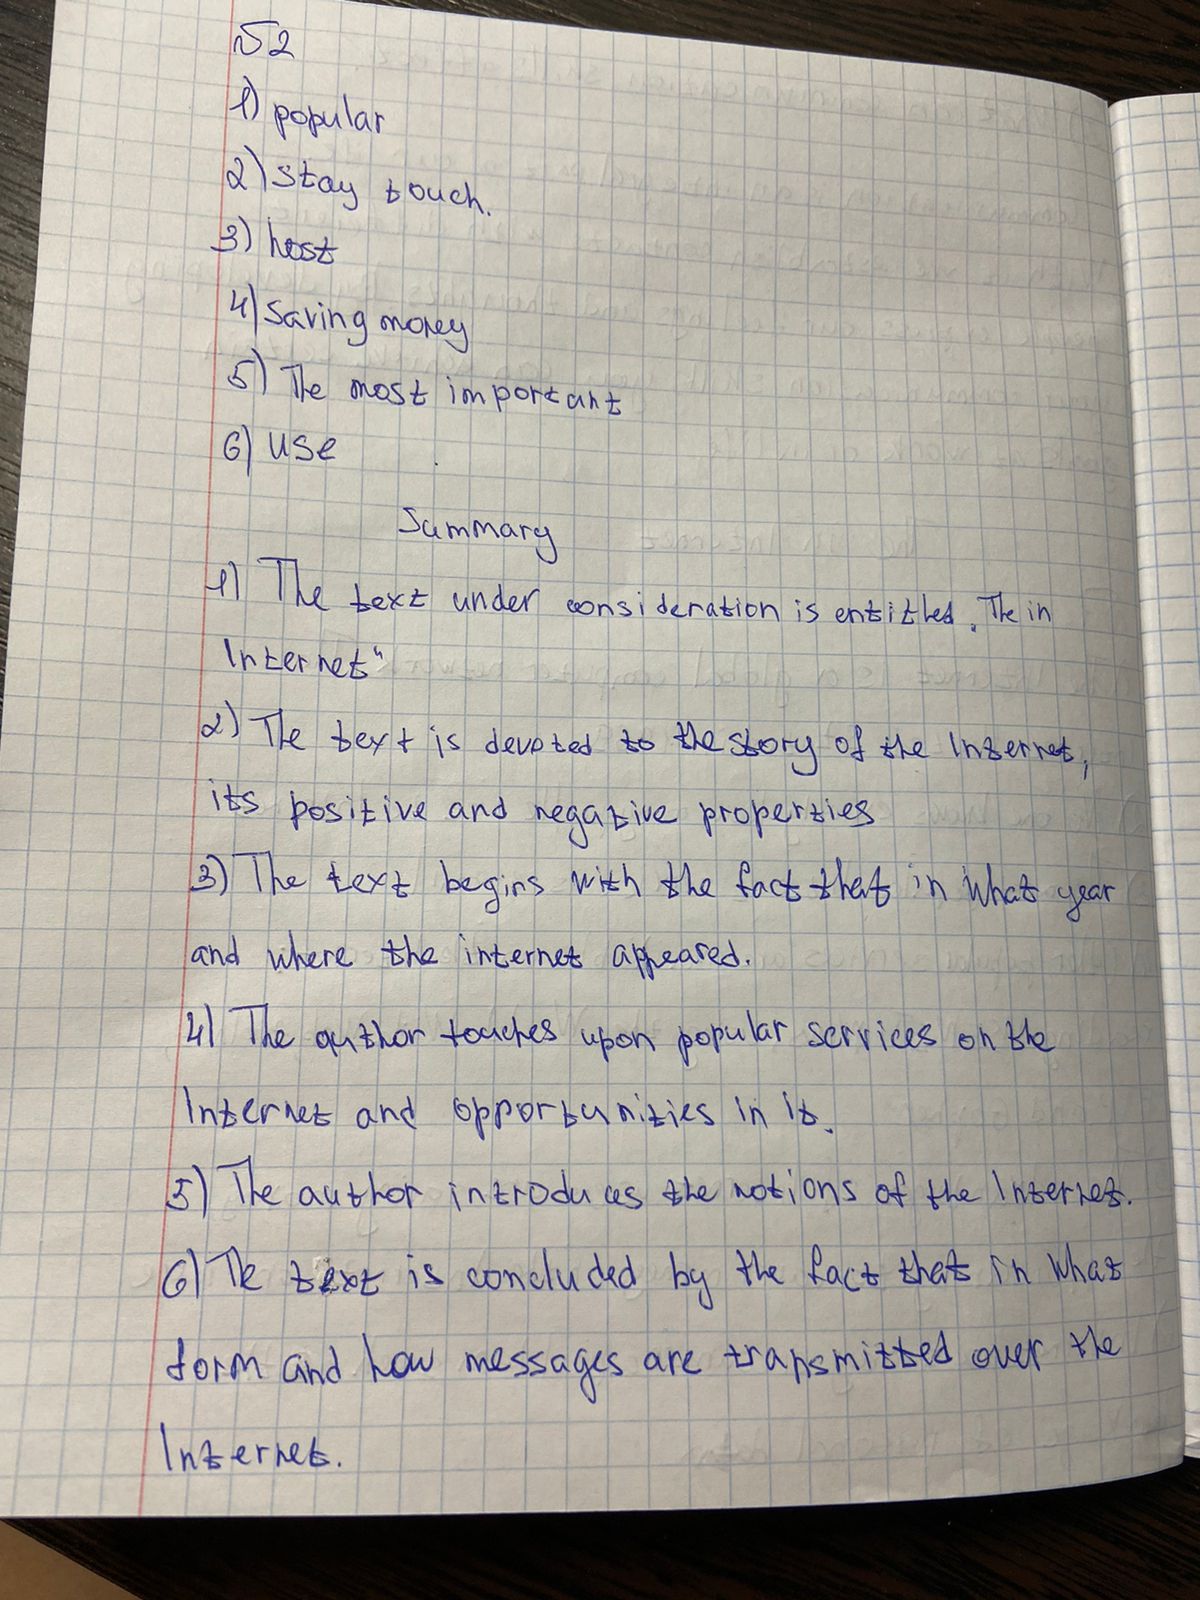 №2
1) popular
2) stay touch.
3) host
4) Saving money
5) The most important
6) use
Summary
1) The text under consideration is entitled „The in
Internet“
2) The text is devoted to the story of the Internet,
its positive and negative properties
3) The text begins with the fact that in what year
and where the internet appeared.
4) The author touches upon popular services on the
Internet and opportunities in it.
5) The author introduces the notions of the Internet.
6) The text is concluded by the fact that in what
form and how messages are transmitted over the
Internet.